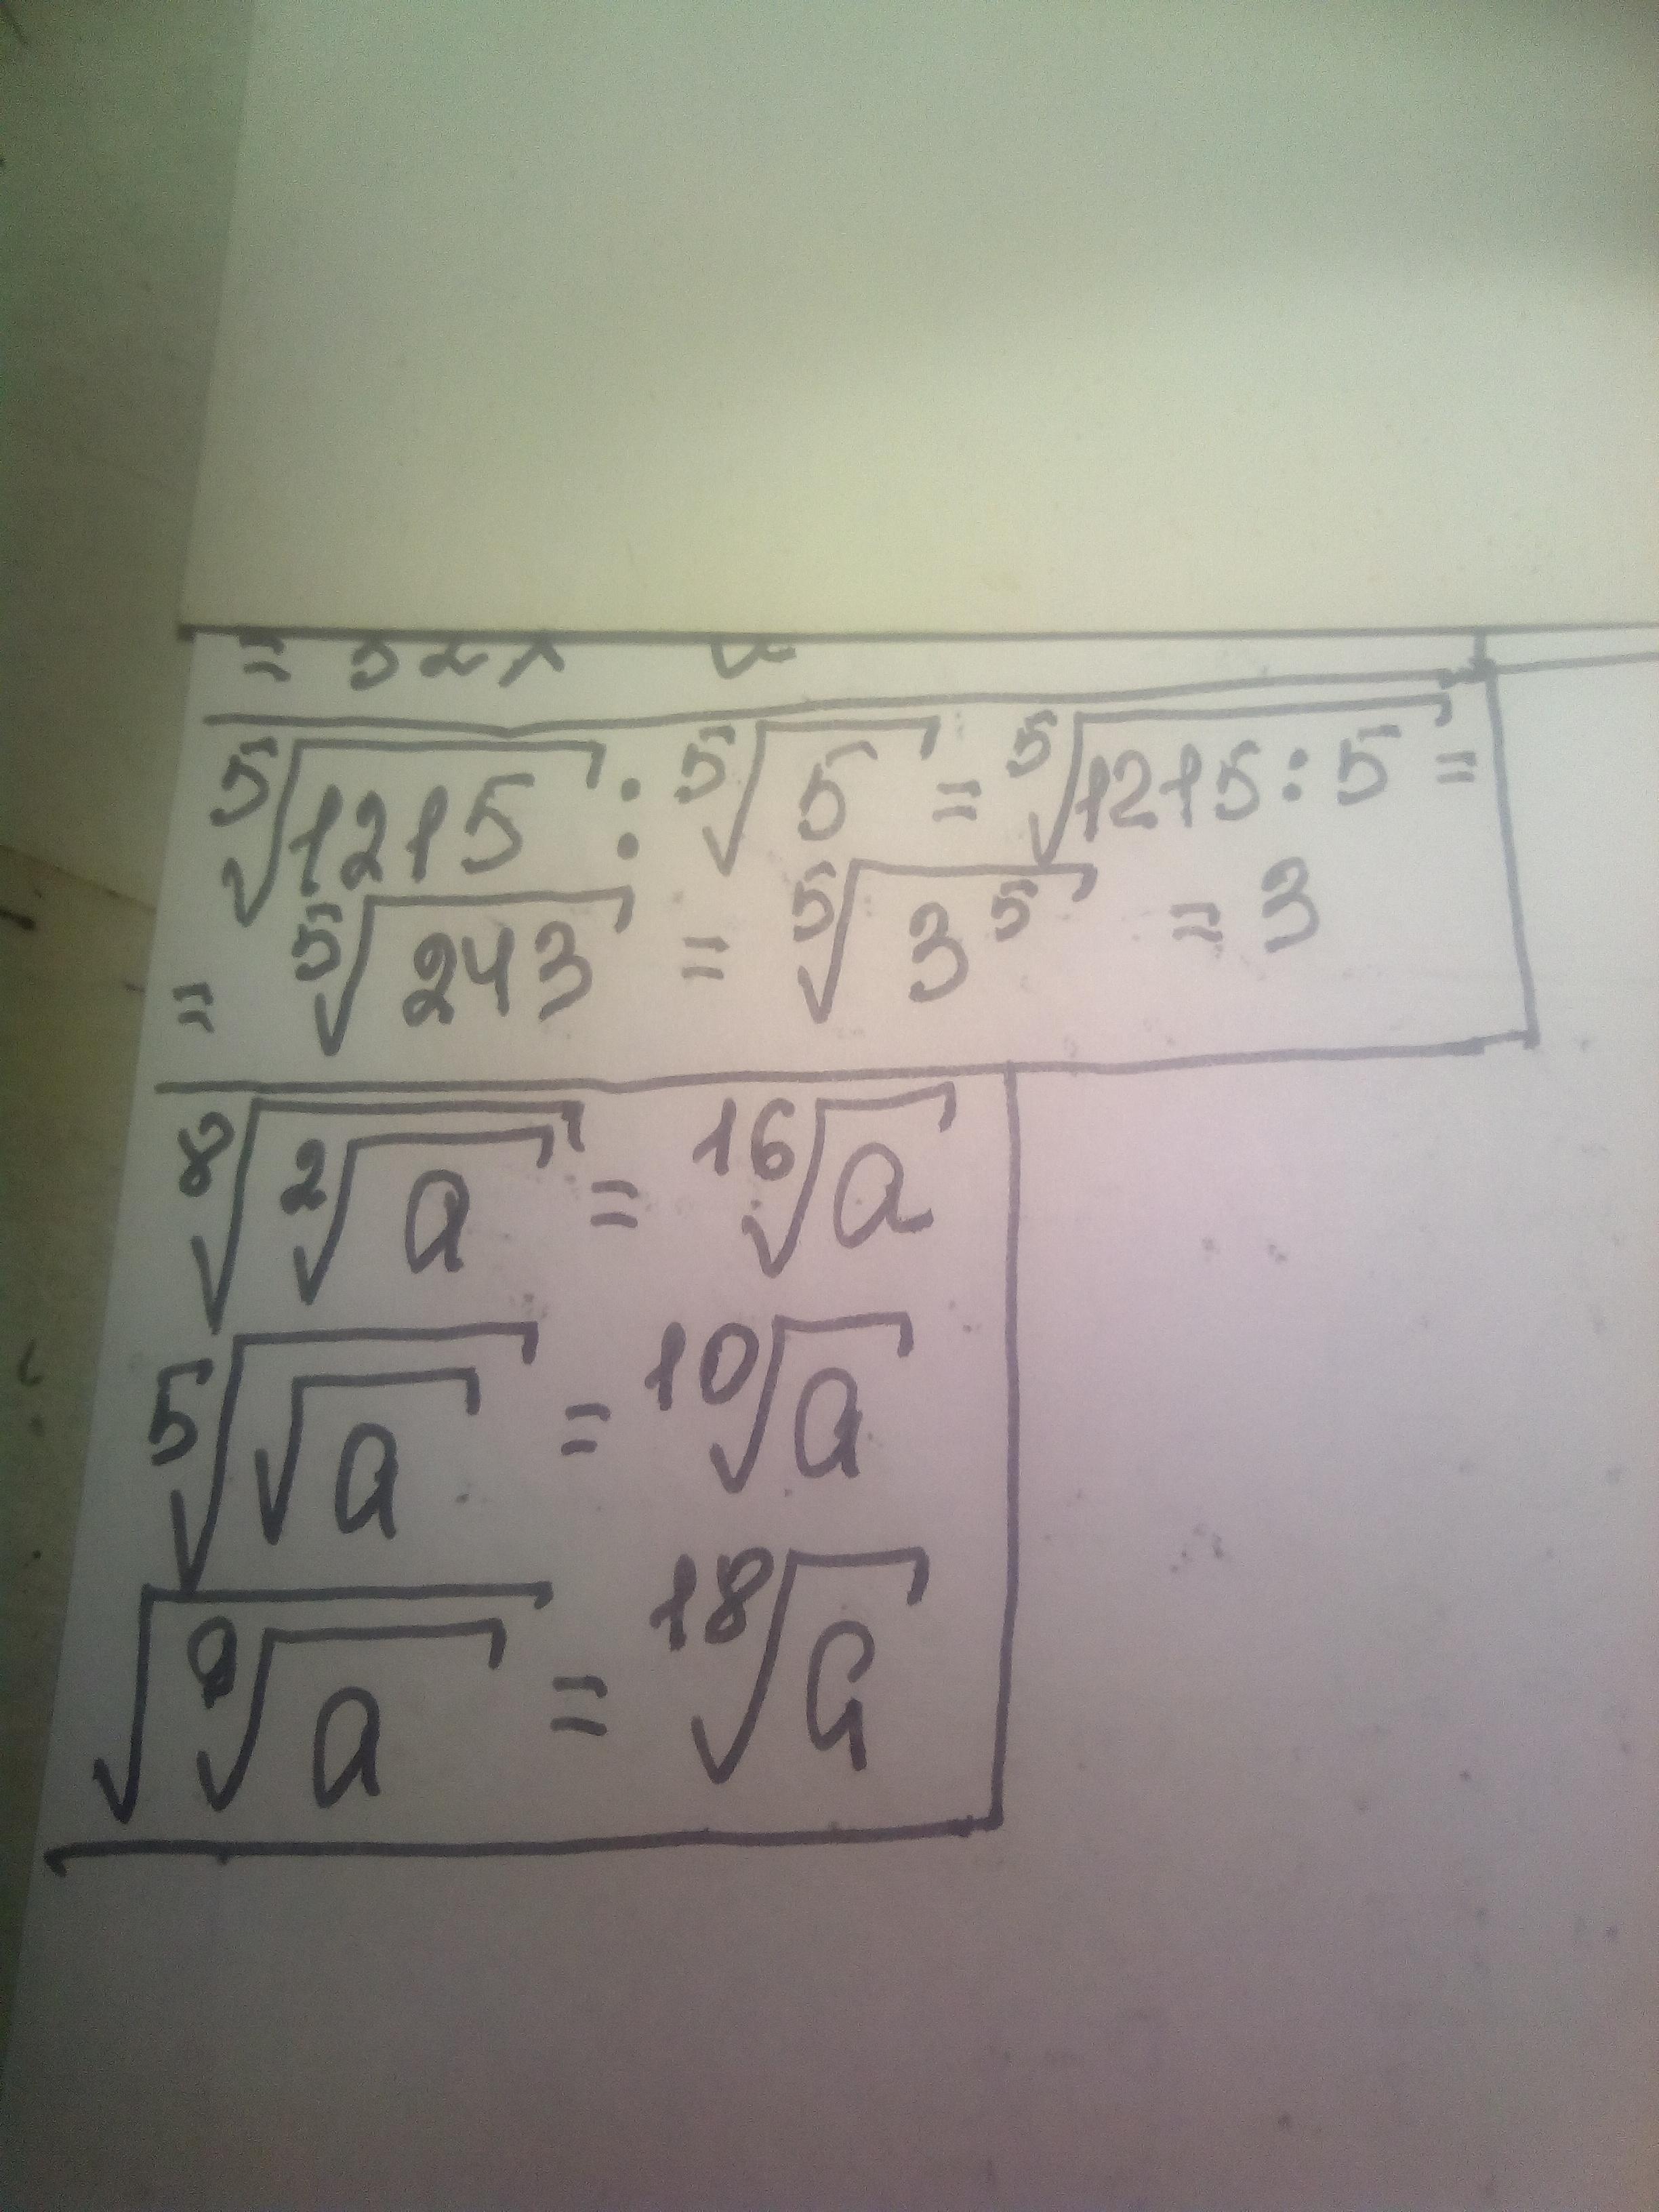 ⁵√1215 : ⁵√5 = ⁵√1215:5 =
= ⁵√243 = ⁵√3⁵ = 3
⁸√²√a = ¹⁶√a
⁵√√a = ¹⁰√a
√⁹√a = ¹⁸√a